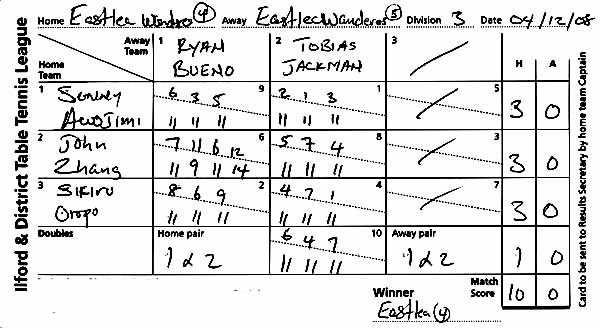 Ilford & District Table Tennis League
Home Eastlea Wndrs (4) Away Eastlea Wanderers (5) Division 3 Date 04/12/08
Away Team 1 RYAN BUENO 2 TOBIAS JACKMAN 3 /
Home Team H A
1 Sunney 6 3 5 9 2 1 3 1 / 5 3 0
11 11 11 11 11 11
2 John Zhang 7 11 6 12 6 5 7 4 8 / 3 3 0
11 9 11 14 11 11 11
3 Sikiru Oropo 8 6 9 2 4 7 1 4 / 7 3 0
11 11 11 11 11 11
Doubles Home pair 1 & 2 6 4 7 10 Away pair 1 & 2 1 0
11 11 11
Winner Eastlea (4) Match Score 10 0
Card to be sent to Results Secretary by home team Captain